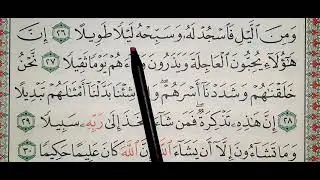 وَمِنَ ٱلَّيۡلِ فَٱسۡجُدۡ لَهُۥ وَسَبِّحۡهُ لَيۡلٗا طَوِيلًا ٢٦ إِنَّ
هَٰٓؤُلَآءِ يُحِبُّونَ ٱلۡعَاجِلَةَ وَيَذَرُونَ يَوۡمٗا ثَقِيلٗا ٢٧ نَّحۡنُ
خَلَقۡنَٰهُمۡ وَشَدَدۡنَآ أَسۡرَهُمۡۖ شِئۡنَا بَدَّلۡنَآ أَمۡثَٰلَهُمۡ تَبۡدِيلًا ٢٨
إِنَّ هَٰذِهِۦ تَذۡكِرَةٞۖ فَمَن شَآءَ ٱتَّخَذَ إِلَىٰ رَبِّهِۦ سَبِيلٗا ٢٩
وَمَا تَشَآءُونَ إِلَّآ أَن يَشَآءَ ٱللَّهُۚ إِنَّ ٱللَّهَ كَانَ عَلِيمًا حَكِيمٗا ٣٠